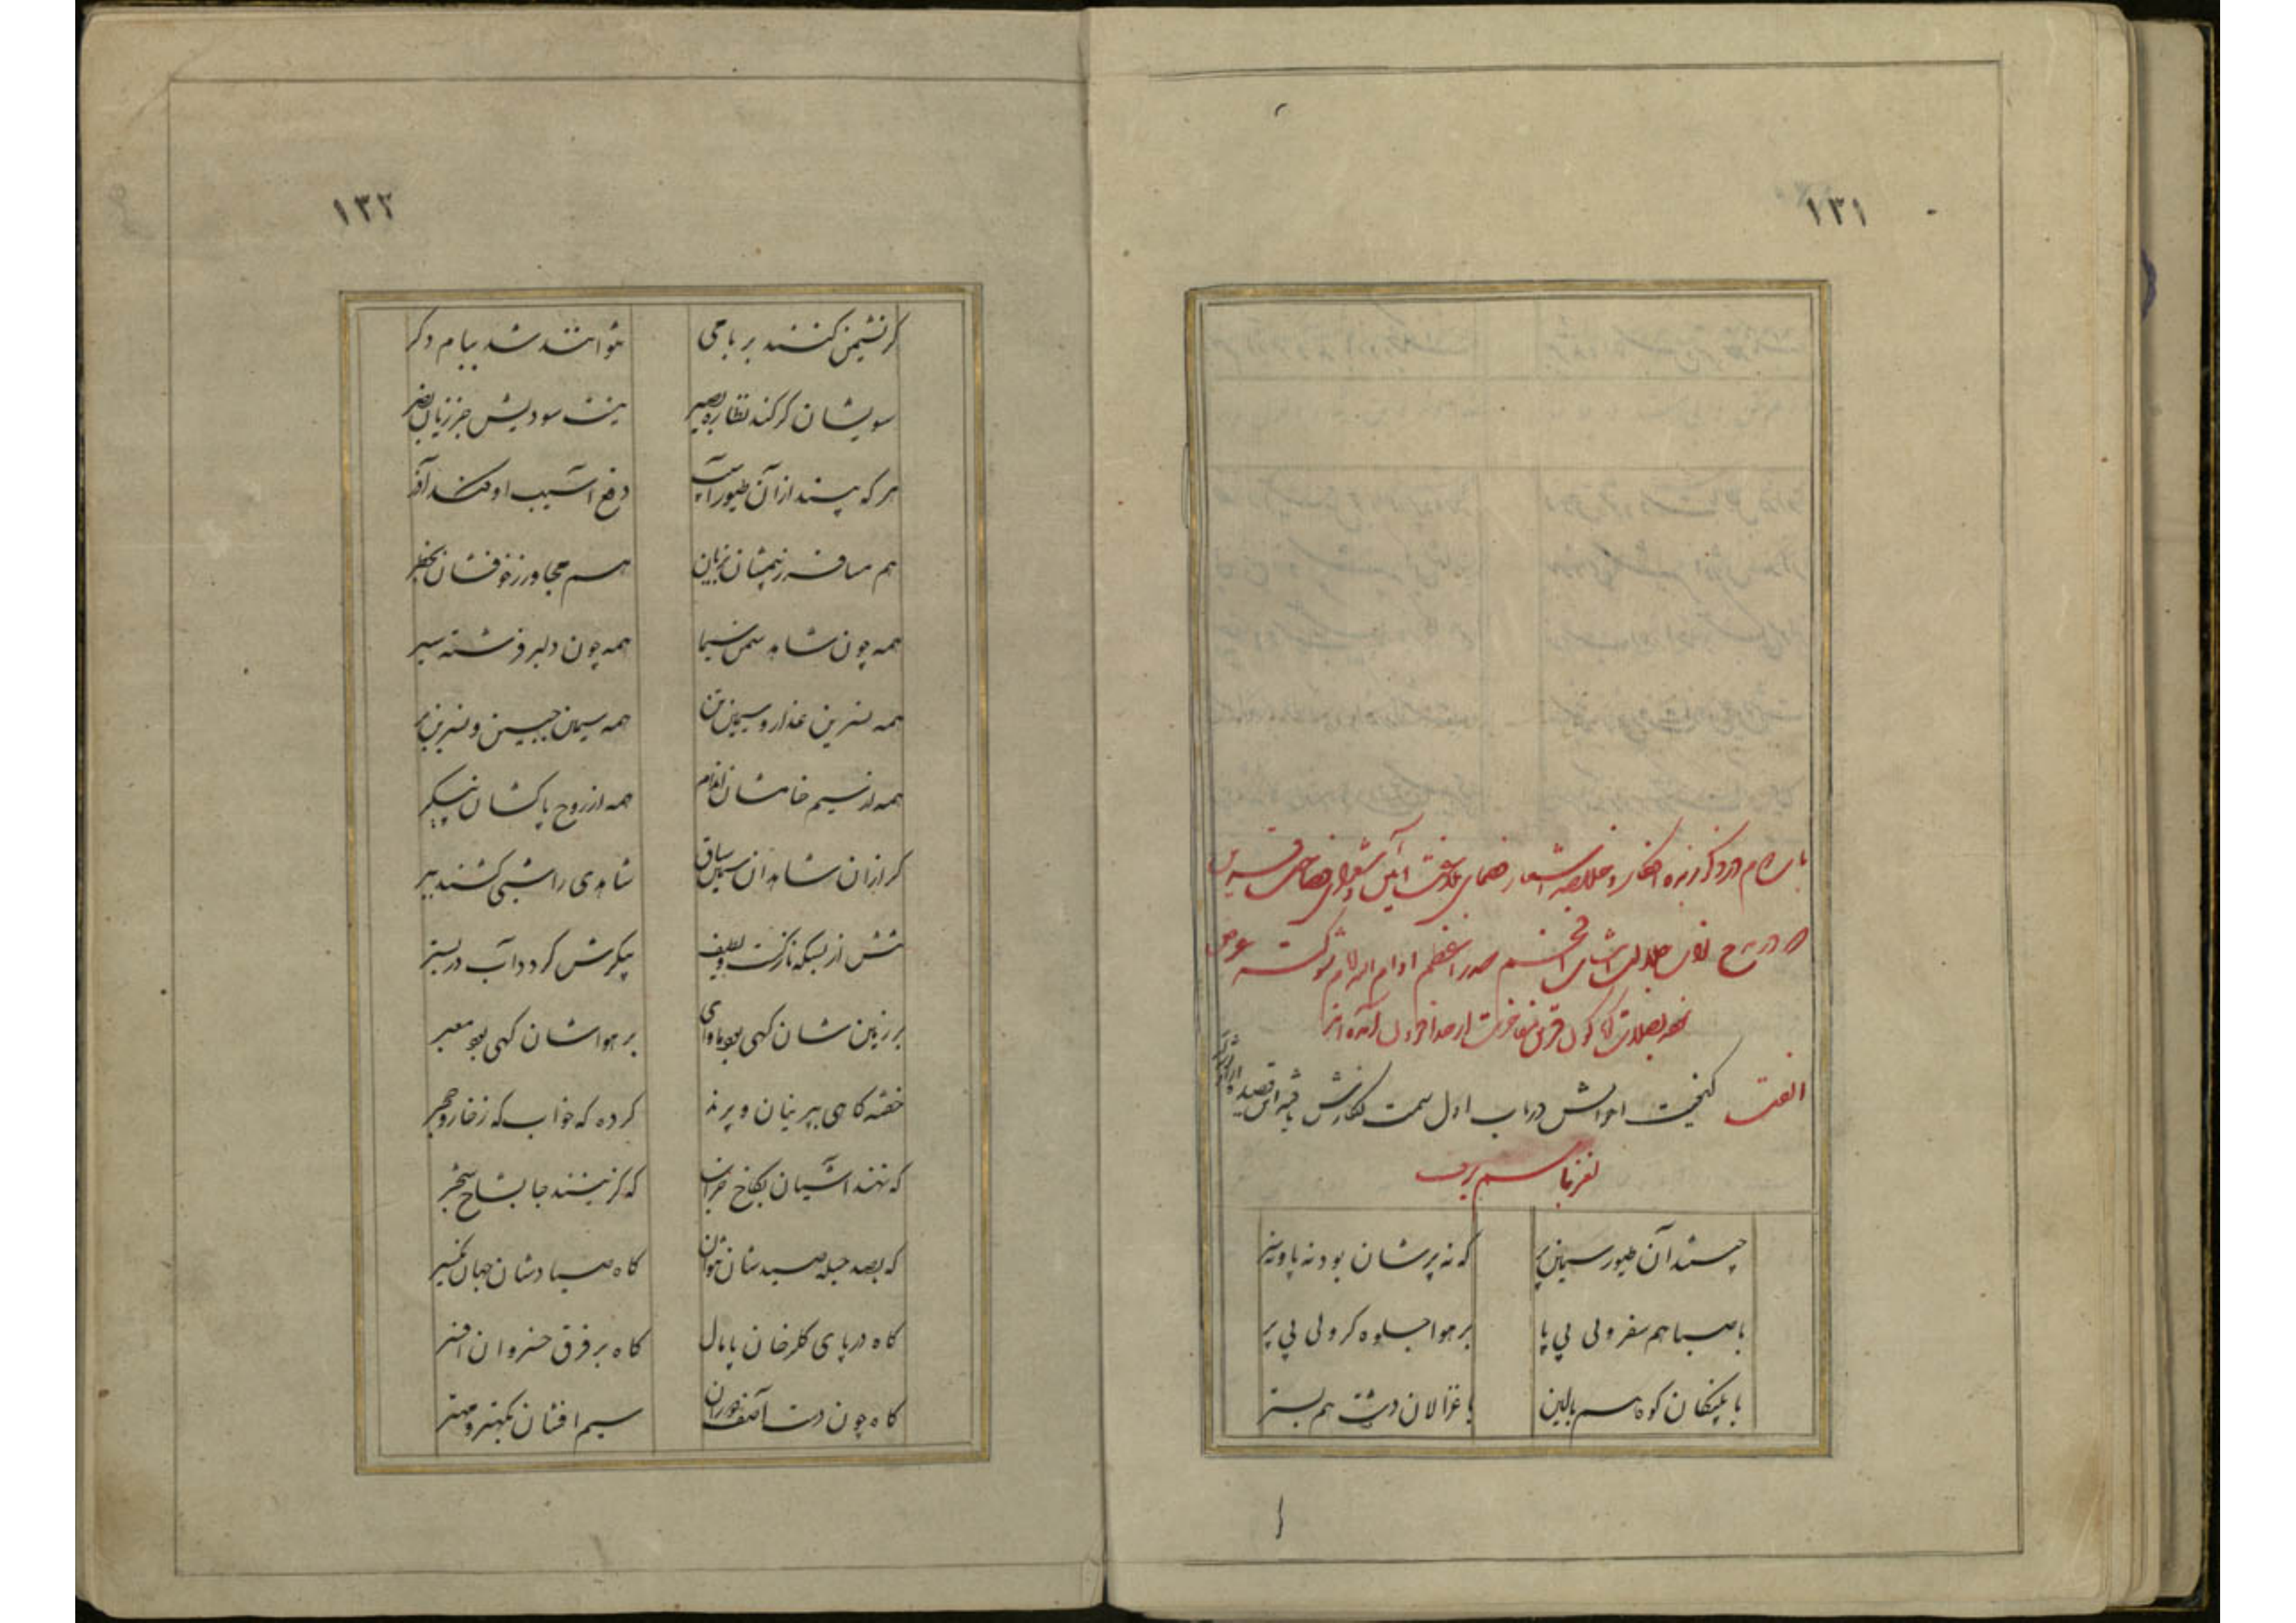 ۱۳۱
باب دوم در ذکر زبده افکار و خلاصه اشعار فصحای بلاغت آئین و شعرای فصاحت قرین
که در مدح صدر اعظم ادام الله
الفت کیفیت احوالش در باب اول سمت نگارش یافته این قصیده
لغز باسم برف
چیستند آن طیور سیمین پر که نه پرشان بود نه پا و نه سر
با صبا هم سفر ولی بی پا بر هوا جلوه گر ولی بی پر
با پلنگان کوه هم بالین با غزالان دشت هم بستر
۱۳۲
گر نشیمن کنند بر بامی نتوانند شد ببام دگر
سویشان گر کند نظاره بصیر نیست سودیش جز زیان بصر
هر که بیند از آن طیور آسیب دفع آسیب او کند آذر
هم مسافر ز بیمشان بزیان هم مجاور ز خوفشان بخطر
همه چون شاهد سمن سیما همه چون دلبر فرشته سیر
همه نسرین عذار و سیمین تن همه سیمین جبین و نسرین بر
همه از سیم خامشان اندام همه از روح پاکشان پیکر
گر از آن شاهدان سیمین ساق شاهدی را شبی کشند ببر
تنش از بسکه نازکست و لطیف پیکرش گردد آب در بستر
بر زمین شان گهی بود ماوای بر هواشان گهی بود معبر
خفته گاهی بپرنیان و پرند کرده گه خواب گه ز خار و حجر
که نهند آشیان بکاخ خراب که گزینند جا بشاخ شجر
که بصد حیله صیدشان نتوان گاه صیادشان جهان یکسر
گاه در پای گلرخان پامال گاه بر فرق خسروان افسر
گاه چون دست آصف دوران سیم افشان بکهتر و مهتر